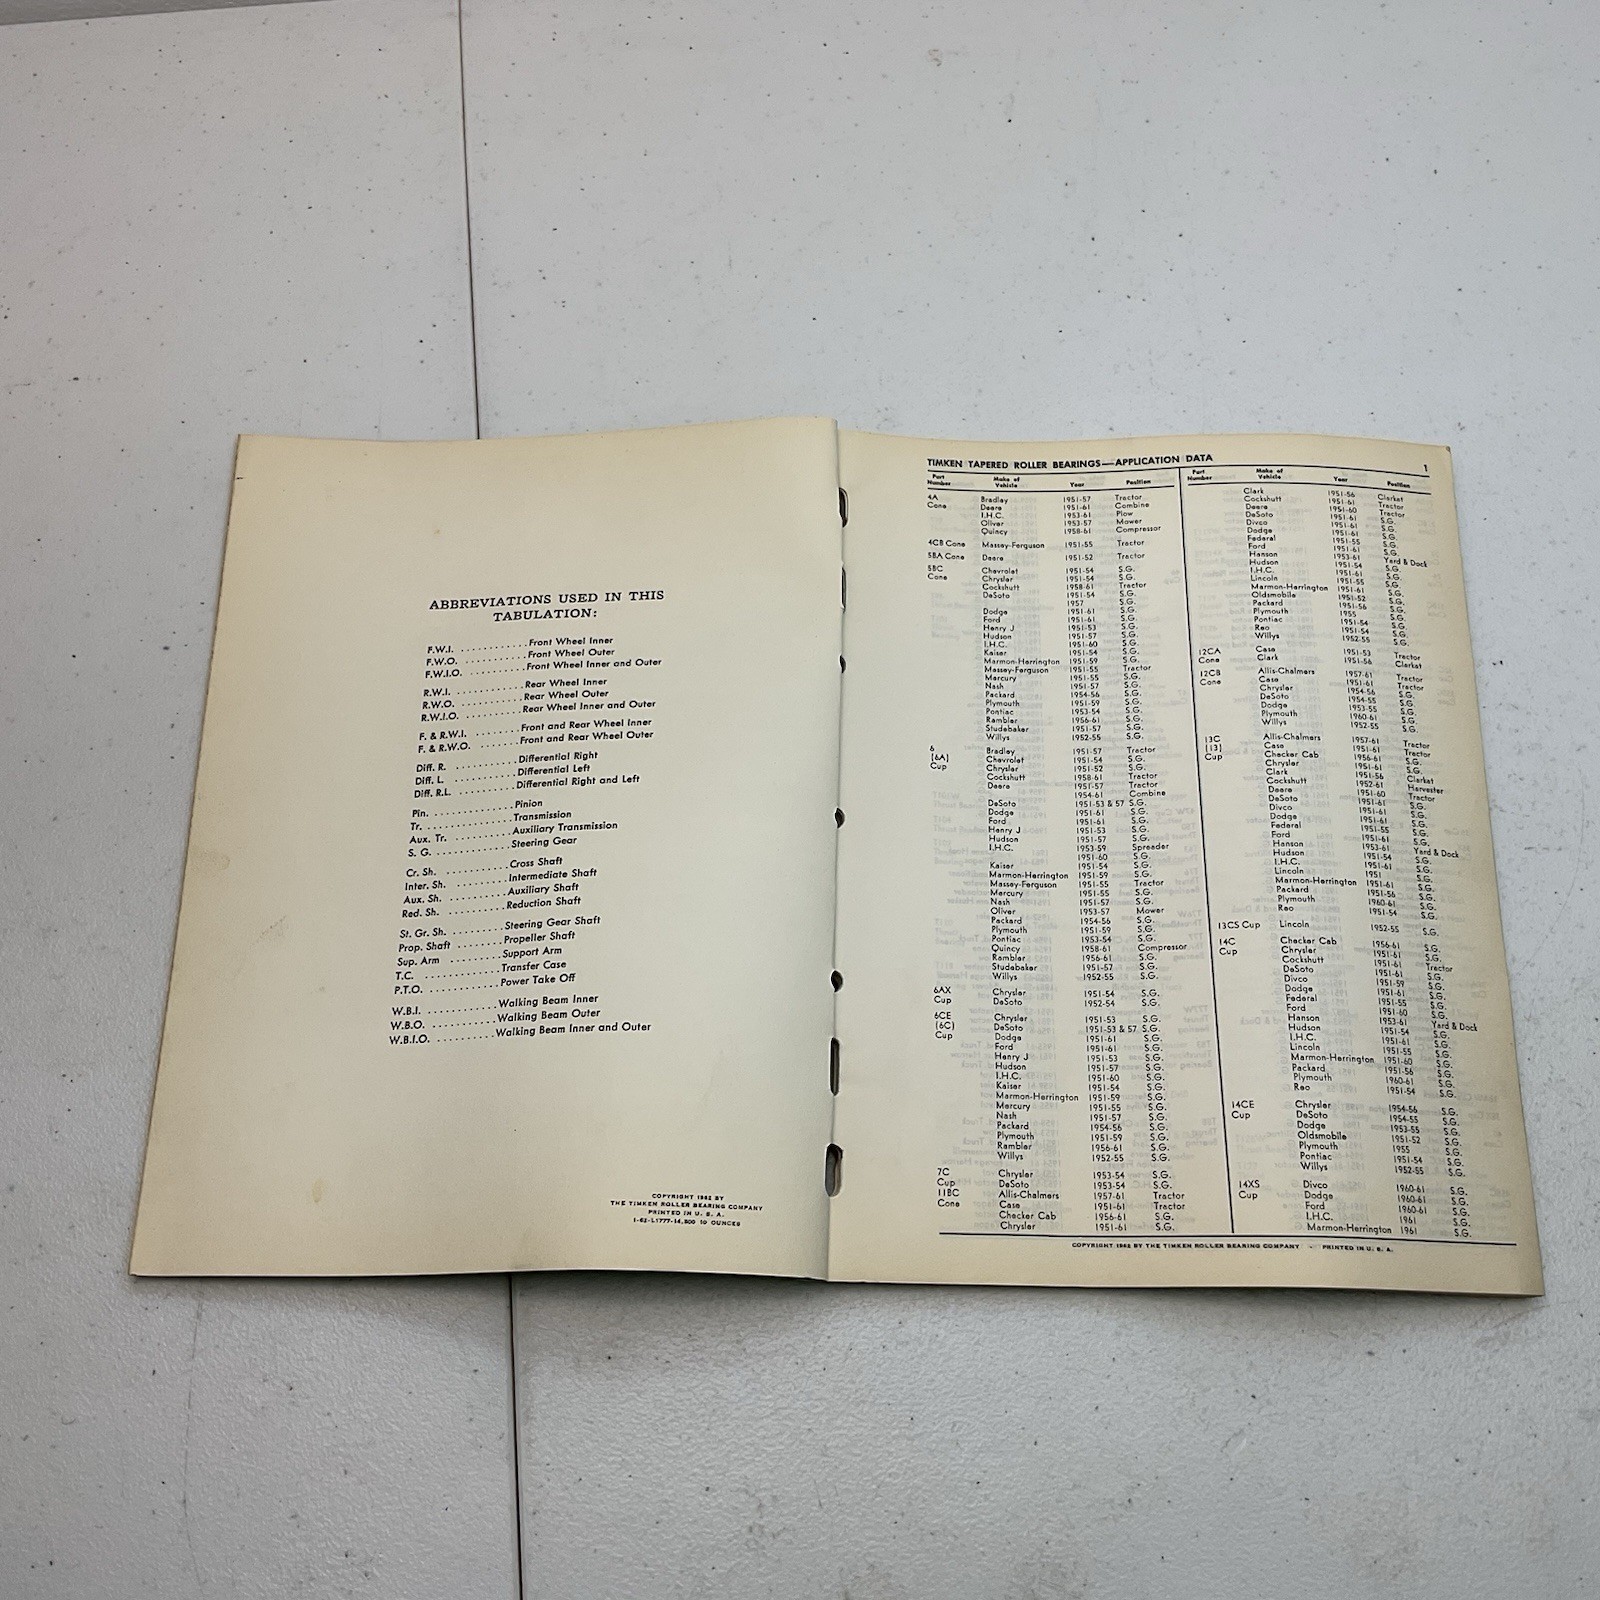 ABBREVIATIONS USED IN THIS
TABULATION:
F.W.I. ............Front Wheel Inner
F.W.O. ............Front Wheel Outer
F.W.I.O. ...........Front Wheel Inner and Outer
R.W.I. ............Rear Wheel Inner
R.W.O. ............Rear Wheel Outer
R.W.I.O. ..........Rear Wheel Inner and Outer
F. & R.W.I. .......Front and Rear Wheel Inner
F. & R.W.O. .......Front and Rear Wheel Outer
Diff. R. ...........Differential Right
Diff. L. ...........Differential Left
Diff. R.L. ..........Differential Right and Left
Pin. ..............Pinion
Tr. ...............Transmission
Aux. Tr. ..........Auxiliary Transmission
S. G. .............Steering Gear
Cr. Sh. ...........Cross Shaft
Inter. Sh. .........Intermediate Shaft
Aux. Sh. ..........Auxiliary Shaft
Red. Sh. ..........Reduction Shaft
St. Gr. Sh. .........Steering Gear Shaft
Prop. Shaft ........Propeller Shaft
Sup. Arm .........Support Arm
T.C. ..............Transfer Case
P.T.O. ............Power Take Off
W.B.I. ............Walking Beam Inner
W.B.O. ...........Walking Beam Outer
W.B.I.O. ..........Walking Beam Inner and Outer
COPYRIGHT 1962 BY
THE TIMKEN ROLLER BEARING COMPANY
PRINTED IN U. S. A.
1-62-L1777-14,500 10 OUNCES
TIMKEN TAPERED ROLLER BEARINGS—APPLICATION DATA 1
Part Number Make of Vehicle Year Position
4A Bradley 1951-57 Tractor
Cone Deere 1951-61 Combine
I.H.C. 1953-61 Plow
Oliver 1953-57 Mower
Quincy 1958-61 Compressor
4CB Cone Massey-Ferguson 1951-55 Tractor
5BA Cone Deere 1951-52 Tractor
5BC Chevrolet 1951-54 S.G.
Cone Chrysler 1951-54 S.G.
Cockshutt 1958-61 Tractor
DeSoto 1951-54 S.G.
1957 S.G.
Dodge 1951-61 S.G.
Ford 1951-61 S.G.
Henry J 1951-53 S.G.
Hudson 1951-57 S.G.
I.H.C. 1951-60 S.G.
Kaiser 1951-54 S.G.
Marmon-Herrington 1951-59 S.G.
Massey-Ferguson 1951-55 Tractor
Mercury 1951-55 S.G.
Nash 1951-57 S.G.
Packard 1954-56 S.G.
Plymouth 1951-59 S.G.
Pontiac 1953-54 S.G.
Rambler 1956-61 S.G.
Studebaker 1951-57 S.G.
Willys 1952-55 S.G.
6 Bradley 1951-57 Tractor
(6A) Chevrolet 1951-54 S.G.
Cup Chrysler 1951-52 S.G.
Cockshutt 1958-61 Tractor
Deere 1951-57 Tractor
1954-61 Combine
DeSoto 1951-53 & 57 S.G.
Dodge 1951-61 S.G.
Ford 1951-61 S.G.
Henry J 1951-53 S.G.
Hudson 1951-57 S.G.
I.H.C. 1953-59 Spreader
1951-60 S.G.
Kaiser 1951-54 S.G.
Marmon-Herrington 1951-59 S.G.
Massey-Ferguson 1951-55 Tractor
Mercury 1951-55 S.G.
Nash 1951-57 S.G.
Oliver 1953-57 Mower
Packard 1954-56 S.G.
Plymouth 1951-59 S.G.
Pontiac 1953-54 S.G.
Quincy 1958-61 Compressor
Rambler 1956-61 S.G.
Studebaker 1951-57 S.G.
Willys 1952-55 S.G.
6AX Chrysler 1951-54 S.G.
Cup DeSoto 1952-54 S.G.
6CE Chrysler 1951-53 S.G.
(6C) DeSoto 1951-53 & 57 S.G.
Cup Dodge 1951-61 S.G.
Ford 1951-61 S.G.
Henry J 1951-53 S.G.
Hudson 1951-57 S.G.
I.H.C. 1951-60 S.G.
Kaiser 1951-54 S.G.
Marmon-Herrington 1951-59 S.G.
Mercury 1951-55 S.G.
Nash 1951-57 S.G.
Packard 1954-56 S.G.
Plymouth 1951-59 S.G.
Rambler 1956-61 S.G.
Willys 1952-55 S.G.
7C Chrysler 1953-54 S.G.
Cup DeSoto 1953-54 S.G.
11BC Allis-Chalmers 1957-61 Tractor
Cone Case 1951-61 Tractor
Checker Cab 1956-61 S.G.
Chrysler 1951-61 S.G.
Part Number Make of Vehicle Year Position
Clark 1951-56 Clarkat
Cockshutt 1951-61 Tractor
Deere 1951-60 Tractor
DeSoto 1951-61 S.G.
Divco 1951-61 S.G.
Dodge 1951-61 S.G.
Federal 1951-55 S.G.
Ford 1951-61 S.G.
Hanson 1953-61 Yard & Dock
Hudson 1951-54 S.G.
I.H.C. 1951-61 S.G.
Lincoln 1951-55 S.G.
Marmon-Herrington 1951-61 S.G.
Oldsmobile 1951-52 S.G.
Packard 1951-56 S.G.
Plymouth 1955 S.G.
Pontiac 1951-54 S.G.
Reo 1951-54 S.G.
Willys 1952-55 S.G.
12CA Case 1951-53 Tractor
Cone Clark 1951-56 Clarkat
12CB Allis-Chalmers 1957-61 Tractor
Cone Case 1951-61 Tractor
Chrysler 1954-56 S.G.
DeSoto 1954-55 S.G.
Dodge 1953-55 S.G.
Plymouth 1960-61 S.G.
Willys 1952-55 S.G.
13C Allis-Chalmers 1957-61 Tractor
(13) Case 1951-61 Tractor
Cup Checker Cab 1956-61 S.G.
Chrysler 1951-61 S.G.
Clark 1951-56 Clarkat
Cockshutt 1952-61 Harvester
Deere 1951-60 Tractor
DeSoto 1951-61 S.G.
Divco 1951-61 S.G.
Dodge 1951-61 S.G.
Federal 1951-55 S.G.
Ford 1951-61 S.G.
Hanson 1953-61 Yard & Dock
Hudson 1951-54 S.G.
I.H.C. 1951-61 S.G.
Lincoln 1951 S.G.
Marmon-Herrington 1951-61 S.G.
Packard 1951-56 S.G.
Plymouth 1960-61 S.G.
Reo 1951-54 S.G.
13CS Cup Lincoln 1952-55 S.G.
14C Checker Cab 1956-61 S.G.
Cup Chrysler 1951-61 S.G.
Cockshutt 1951-61 Tractor
DeSoto 1951-61 S.G.
Divco 1951-59 S.G.
Dodge 1951-61 S.G.
Federal 1951-55 S.G.
Ford 1951-60 S.G.
Hanson 1953-61 Yard & Dock
Hudson 1951-54 S.G.
I.H.C. 1951-61 S.G.
Lincoln 1951-55 S.G.
Marmon-Herrington 1951-60 S.G.
Packard 1951-56 S.G.
Plymouth 1960-61 S.G.
Reo 1951-54 S.G.
14CE Chrysler 1954-56 S.G.
Cup DeSoto 1954-55 S.G.
Dodge 1953-55 S.G.
Oldsmobile 1951-52 S.G.
Plymouth 1955 S.G.
Pontiac 1951-54 S.G.
Willys 1952-55 S.G.
14XS Divco 1960-61 S.G.
Cup Dodge 1960-61 S.G.
Ford 1960-61 S.G.
I.H.C. 1961 S.G.
Marmon-Herrington 1961 S.G.
COPYRIGHT 1962 BY THE TIMKEN ROLLER BEARING COMPANY - PRINTED IN U. S. A.